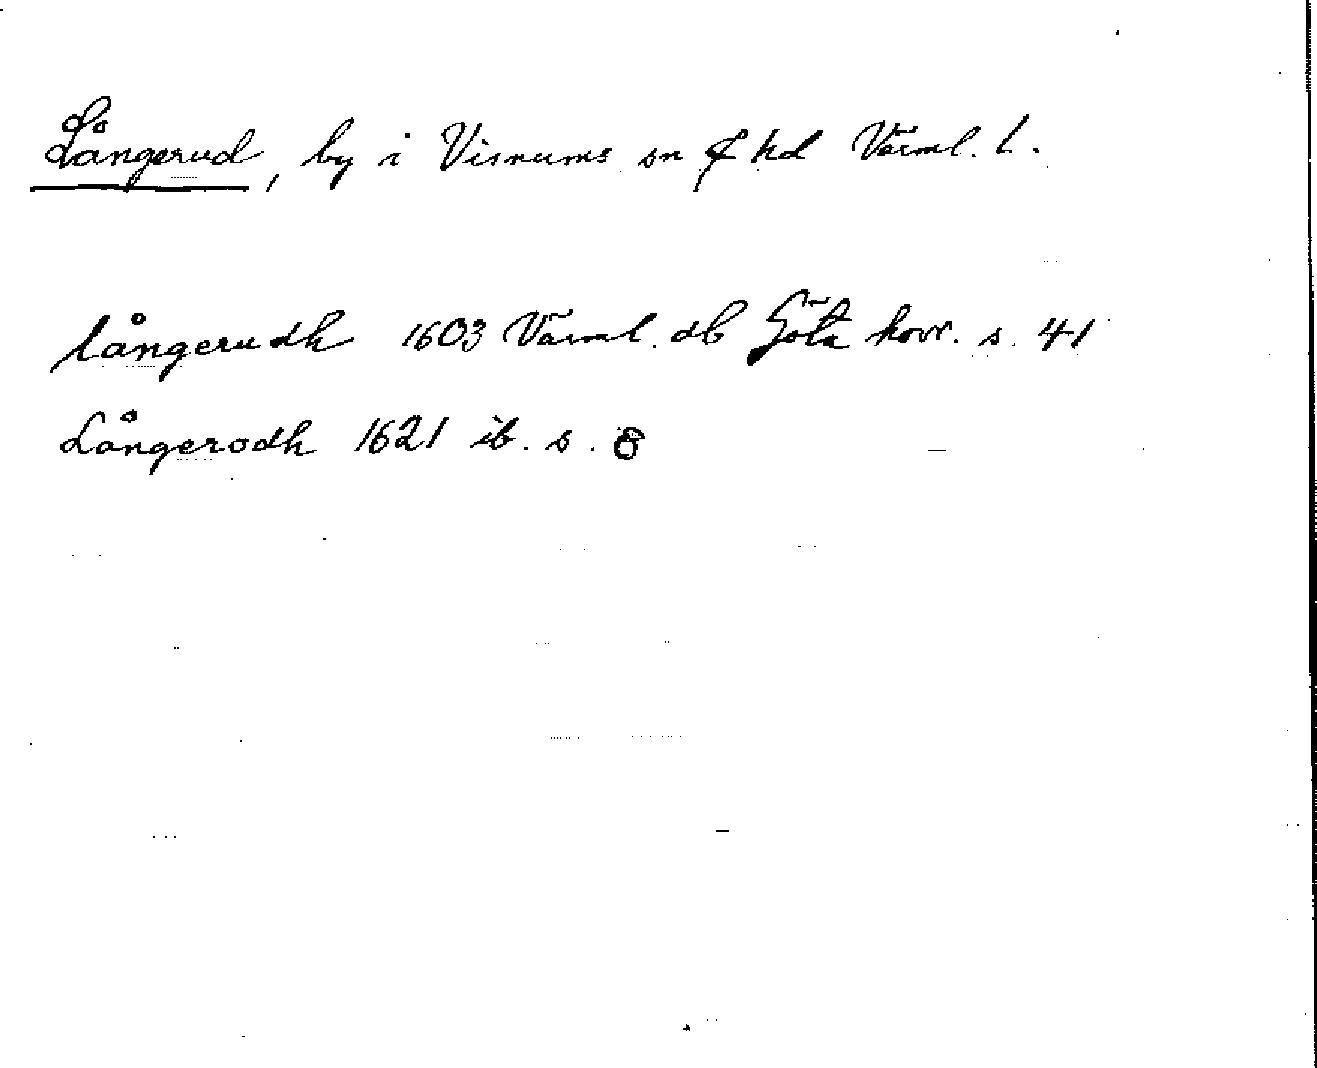 Långerud, by i Visnums sn & hd Värml. l.
långerudh 1603 Värml. db Göta hovr. s. 41
Långerodh 1621 ib. s. 8